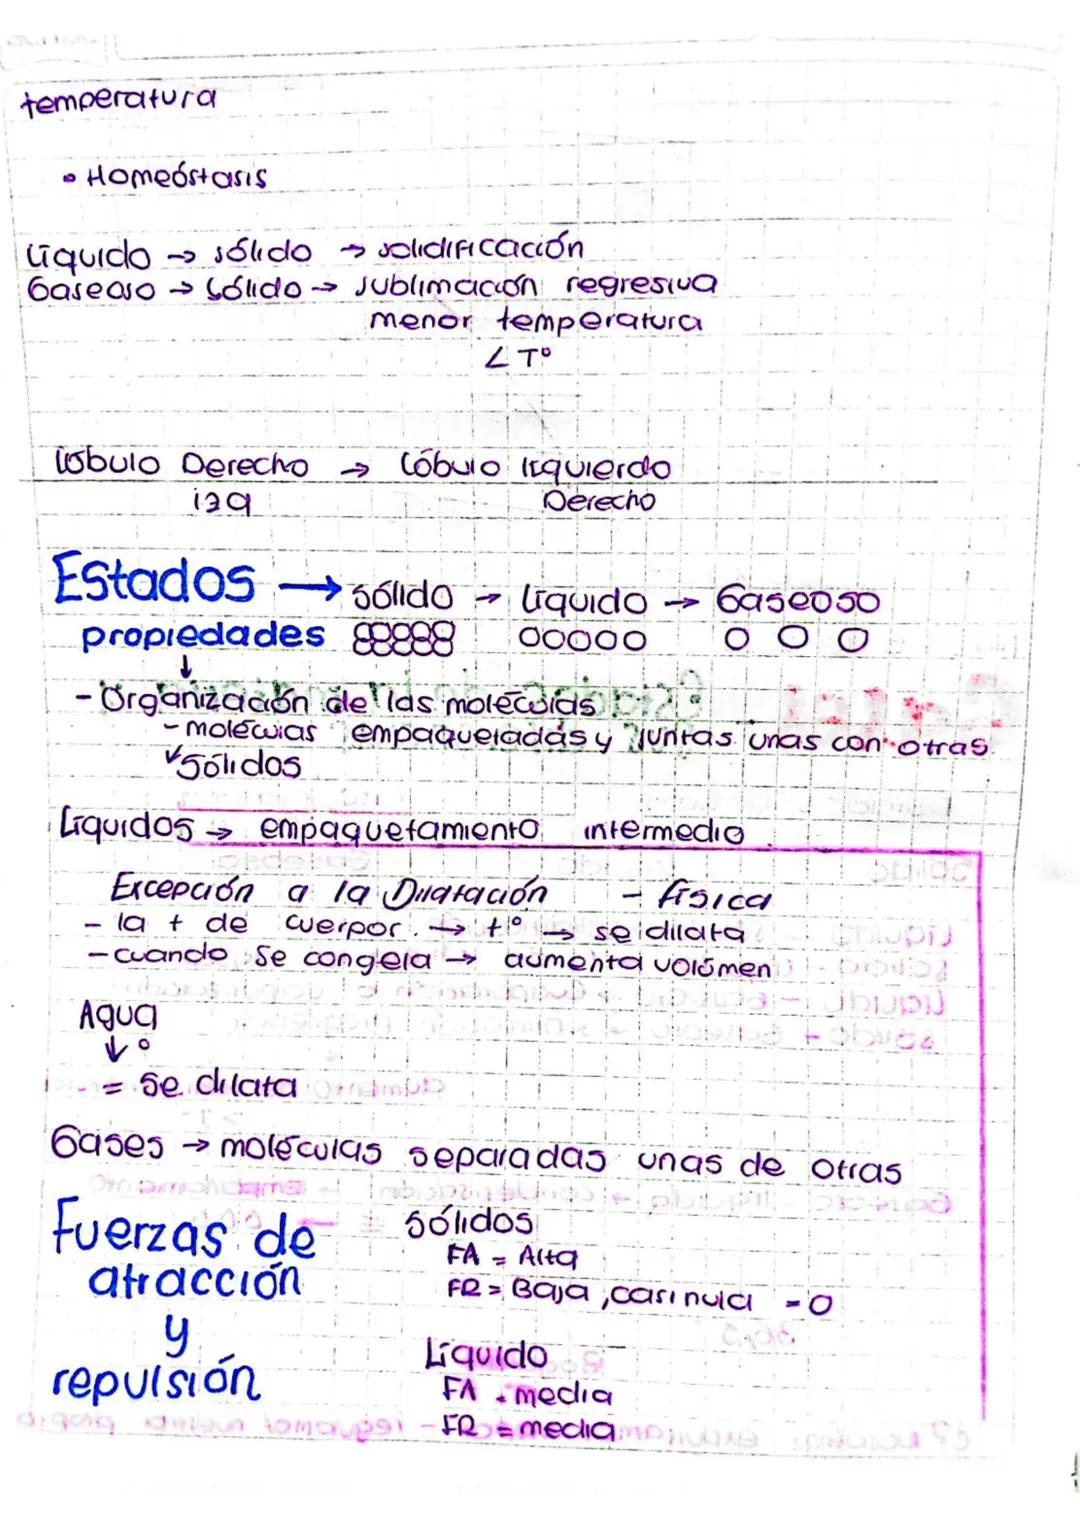 temperatura
• Homeóstasis
Líquido → sólido → solidificación
Gaseoso → Sólido → sublimación regresiva
menor temperatura
∠ T°
Lóbulo Derecho → Lóbulo Izquierdo
izq Derecho
Estados → sólido → Líquido → Gaseoso
propiedades
↓
- Organización de las moléculas
- moléculas empaquetadas y juntas unas con otras
Sólidos
Líquidos → empaquetamiento intermedio
Excepción a la Dilatación - física
- la + de cuerpor. → t° → se dilata
- cuando se congela → aumenta volúmen
Agua
↓ °
= se dilata
Gases → moléculas separadas unas de otras
Fuerzas de
atracción
y
repulsión
Sólidos
FA = Alta
FR = Baja, casi nula = 0
Líquido
FA = media
FR = media